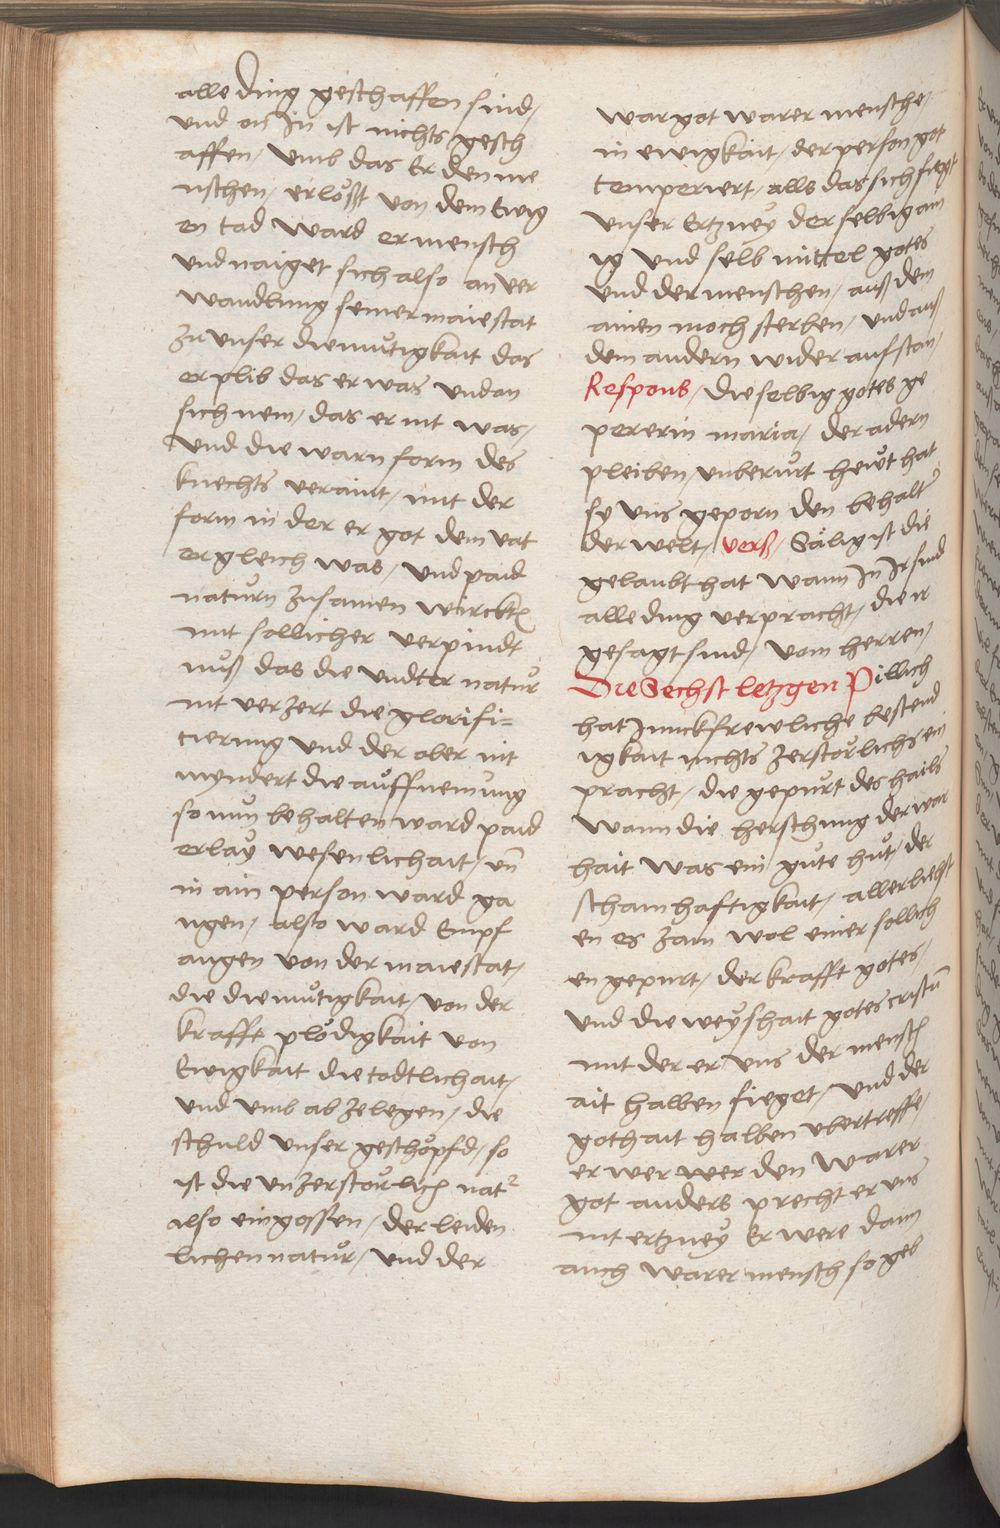 alle ding geschaffen sind/
vnd on In ist nichts gesch
affen/ vmb das Er den me
nschen/ erlößt von dem Ewig
en tod ward er mensch
vnd naiget sich also an ver
wandlung seiner maiestat
zu vnser diemůtigkait das
er plib das er was vnd an
sich nem/ das er nit was/
vnd die warn form des
knechts veraint/ mit der
form in der er got dem vat
er gleich was/ vnd paid
naturn zusamen wirckt
mit sollicher verpindt
nuß das die vndter natur
nit verzert die glorifi=
cierung vnd der ober nit
myndert die auffnemung
so nun behalten ward paid
erlay wesenlichait/ vn̄
in ain person ward ga
ngen/ also ward Empf
angen von der maiestat/
die diemůtigkait/ von der
krafft plödigkait von
Ewigkait die todtlichait/
vnd vmb ab zelegen/ die
schuld vnser geschöpfd/ so
ist die vnzerstörlich nat
also eingossen/ der leiden
lichen natur/ vnd der
war got warer mensche/
in ewigkait/ der person got
temperiert/ alls das sich fiegt
vnser Ertzney der selbig ain
ig vnd selb mittel gotes
vnd der menschen/ auß dem
ainen moch sterben/ vnd auß
dem andern wider aufstan/
Respons/ die selbig gotes ge
pererin maria/ der adern
pleiben/ vnberürt hewt hat
sy vns geporn den behalt
der welt/ verß/ Sälig ist die
gelaubt hat wann In Ir sind
alle ding verpracht/ die ir
gesagt sind/ vom herren/
Die Sechst letzgen Pillich
hat Junckfrewliche bestend
igkait nichts zerstörlichs ein
pracht/ die gepurt des hails
wann die herschung der war
hait was ein gute hut/ der
schamhaftigkait/ allerliebst
en es zam wol einer sollich
en gepurt/ der krafft gotes/
vnd die weyshait gotes cristū
mit der er vns der mensch
ait halben fieget/ vnd der
gothait halben vbertreffe/
er wer wer den warer
got anders precht er vns
nit ertzney Er were dann
auch warer mensch so geb